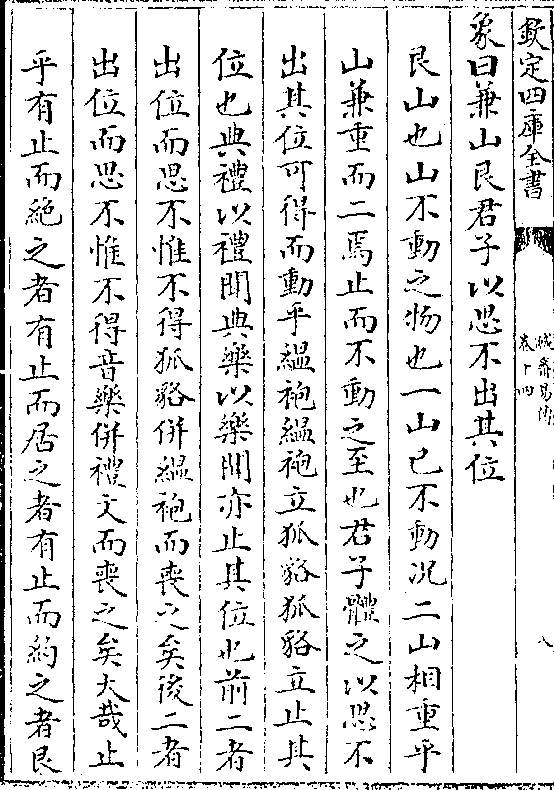 欽定四庫全書
誠齋易傳
卷十四
八
象曰兼山艮君子以思不出其位
艮山也山不動之物也一山已不動況二山相重乎
山兼重而二焉止而不動之至也君子體之以思不
出其位可得而動乎縕袍縕袍立狐貉狐貉立止其
位也典禮以禮聞典樂以樂聞亦止其位也前二者
出位而思不惟不得狐貉併縕袍而喪之矣後二者
出位而思不惟不得音樂併禮文而喪之矣大哉止
乎有止而絶之者有止而居之者有止而約之者艮